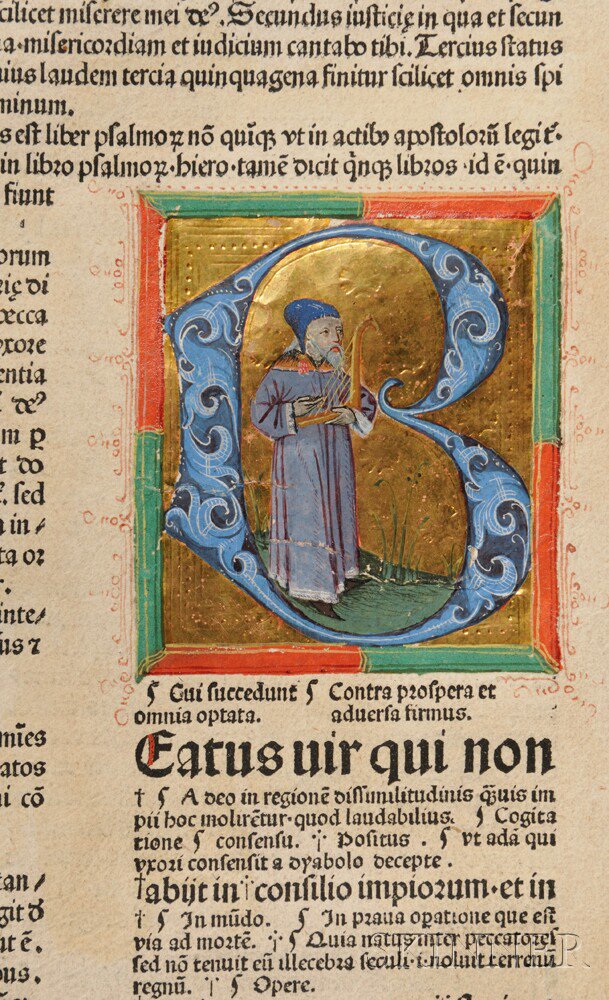 cilicet miserere mei deꝰ. Secundus iusticię in qua et secun
a·misericordiam et iudicium cantabo tibi. Tercius status
uius laudem tercia quinquagena finitur scilicet omnis spi
minum.
s est liber psalmoꝝ nō quīqꝫ vt in actibꝰ apostolorū legit̄·
in libro psalmoꝝ·hiero·tamē dicit qnqꝫ libros·id ē·quin
fiunt
orum
rię di
pecca
vxore
entia
deꝰ
m ꝑ
t do
. sed
a in/
ta or
inte/
us ⁊
B
⸿ Cui succedunt ⸿ Contra prospera et
omnia optata. aduersa firmus.
Eatus uir qui non
† ⸿ A deo in regionē dissimilitudinis quis im
pii hoc molirētur·quod laudabilius. ⸿ Cogita
tione ⸿ consensu. ⁜ Positus . ⸿ vt adā qui
vxori consensit a dyabolo decepte .
†abijt in consilio impiorum·et in
† ⸿ In mūdo. ⸿ In praua oꝑatione que est
via ad mortē. ⁜ ⸿ Quia natus inter peccatores
sed nō tenuit eū illecebra seculi·i·noluit terrenū
regnū. ⸿ Opere.
mīes
atos
ni cō
tan/
git
ut ē.
bus.
SKINNER